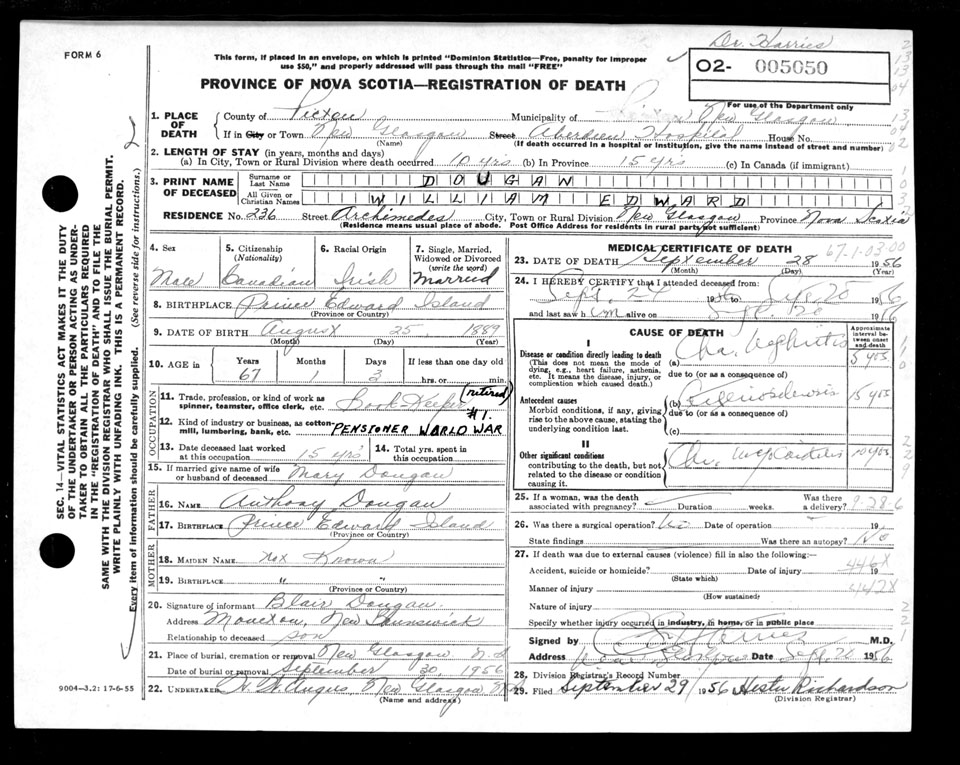 Dr. Harries
FORM 6
This form, if placed in an envelope, on which is printed "Dominion Statistics—Free, penalty for improper
use $50," and properly addressed will pass through the mail "FREE"
02- 005050
PROVINCE OF NOVA SCOTIA—REGISTRATION OF DEATH
For use of the Department only
1. PLACE OF DEATH
County of Pictou Municipality of New Glasgow
If in City or Town New Glasgow Street Aberdeen Hospital House No.
(Name) (If death occurred in a hospital or institution, give the name instead of street and number)
2. LENGTH OF STAY (in years, months and days)
(a) In City, Town or Rural Division where death occurred 10 yrs (b) In Province 15 yrs (c) In Canada (if immigrant)
3. PRINT NAME OF DECEASED
Surname or Last Name DOUGAN
All Given or Christian Names WILLIAM EDWARD
RESIDENCE No. 236 Street Archimedes City, Town or Rural Division New Glasgow Province Nova Scotia
(Residence means usual place of abode. Post Office Address for residents in rural parts not sufficient)
SEC. 14—VITAL STATISTICS ACT MAKES IT THE DUTY
OF THE UNDERTAKER OR PERSON ACTING AS UNDER-
TAKER TO OBTAIN ALL THE PARTICULARS REQUIRED
IN THE "REGISTRATION OF DEATH" AND TO FILE THE
SAME WITH THE DIVISION REGISTRAR WHO SHALL ISSUE THE BURIAL PERMIT.
WRITE PLAINLY WITH UNFADING INK. THIS IS A PERMANENT RECORD.
Every item of information should be carefully supplied. (See reverse side for instructions.)
4. Sex Male
5. Citizenship (Nationality) Canadian
6. Racial Origin Irish
7. Single, Married, Widowed or Divorced (write the word) Married
8. BIRTHPLACE Prince Edward Island
(Province or Country)
9. DATE OF BIRTH August 25 1889
(Month) (Day) (Year)
10. AGE in Years Months Days If less than one day old
67 1 3 hrs. or min.
OCCUPATION
11. Trade, profession, or kind of work as spinner, teamster, office clerk, etc. Book-Keeper (retired)
12. Kind of industry or business, as cotton-mill, lumbering, bank, etc. PENSIONER WORLD WAR #1.
13. Date deceased last worked at this occupation 15 yrs 14. Total yrs. spent in this occupation
15. If married give name of wife or husband of deceased Mary Dougan
FATHER
16. NAME Anthony Dougan
17. BIRTHPLACE Prince Edward Island
(Province or Country)
MOTHER
18. MAIDEN NAME Not Known
19. BIRTHPLACE " "
(Province or Country)
20. Signature of informant Blair Dougan.
Address Moncton, New Brunswick
Relationship to deceased son
21. Place of burial, cremation or removal New Glasgow N.S
Date of burial, or removal September 30, 1956
22. UNDERTAKER Angus, New Glasgow
(Name and address)
9004—3.2: 17-6-55
MEDICAL CERTIFICATE OF DEATH 67-1-03-00
23. DATE OF DEATH September 28 1956
(Month) (Day) (Year)
24. I HEREBY CERTIFY that I attended deceased from:
Sept. 24 1956 to Sept. 28 1956
and last saw him alive on Sept. 28 1956
CAUSE OF DEATH
Approximate interval between onset and death
I
Disease or condition directly leading to death
(This does not mean the mode of dying, e.g., heart failure, asthenia, etc. It means the disease, injury, or complication which caused death.)
(a) Chr. Nephritis 5 yrs
due to (or as a consequence of)
Antecedent causes
Morbid conditions, if any, giving rise to the above cause, stating the underlying condition last.
(b) 15 yrs
due to (or as a consequence of)
(c)
II
Other significant conditions
contributing to the death, but not related to the disease or condition causing it.
Chr. Myocarditis 10 yrs
25. If a woman, was the death associated with pregnancy? Duration weeks. Was there a delivery?
26. Was there a surgical operation? No Date of operation 19
State findings Was there an autopsy? No
27. If death was due to external causes (violence) fill in also the following:—
446X
Accident, suicide or homicide? Date of injury 19
(State which)
442X
Manner of injury
(How sustained)
Nature of injury
Specify whether injury occurred in industry, in home, or in public place
Signed by M.D.
Address New Glasgow Date Sept. 1956
28. Division Registrar's Record Number
29. Filed September 29 1956 Hester Richardson
(Division Registrar)